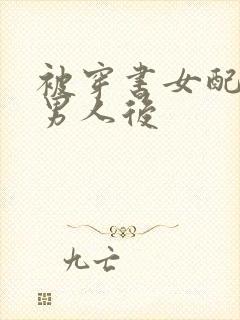 被穿书女配
男人后
九亡